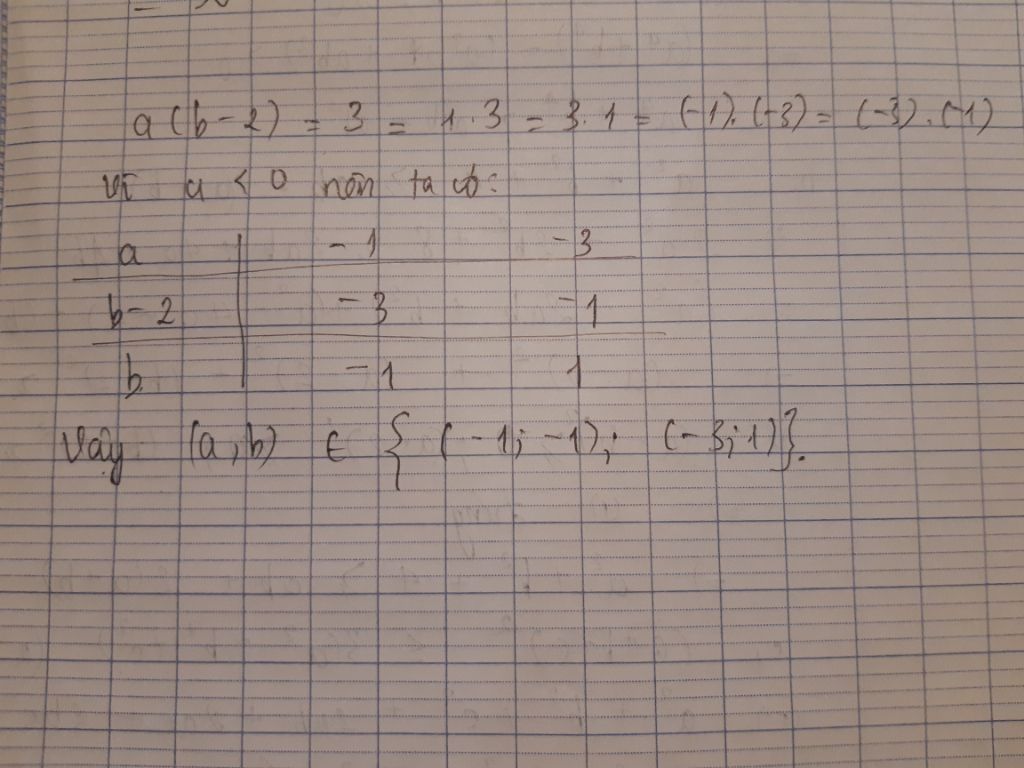 a(b-2) = 3 = 1.3 = 3.1 = (-1).(-3) = (-3).(-1)
vì a < 0 nên ta có:
a | -1 -3
b-2 | -3 -1
b | -1 1
Vậy (a,b) ∈ { (-1;-1); (-3;1)}.